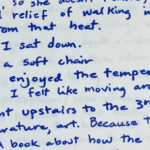 so she doesn't
relief of walking in
om that heat.
I sat down.
a soft chair
enjoyed the temper
I felt like moving aro
nt upstairs to the 3r
rature, art. Because t
book about how the